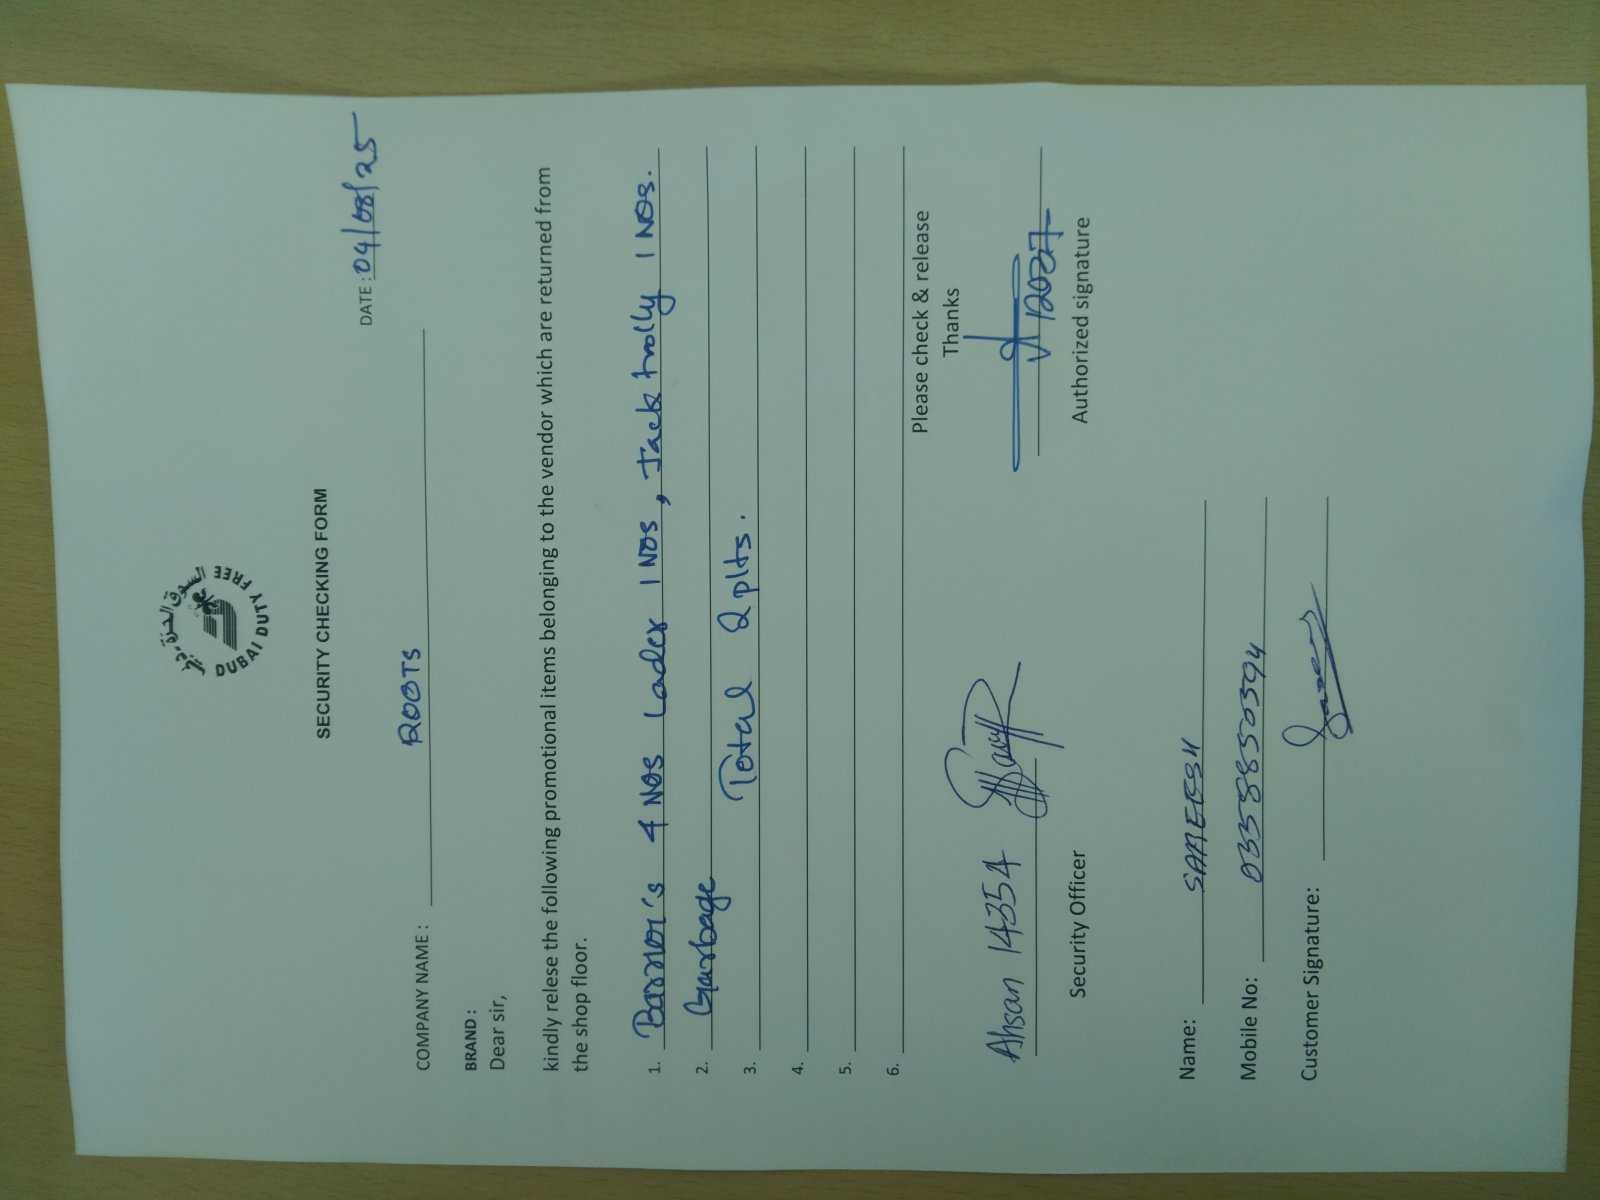 السوق الحرة، دبي
DUBAI DUTY FREE
SECURITY CHECKING FORM
DATE : 04/08/25
COMPANY NAME : ROOTS
BRAND :
Dear sir,
kindly relese the following promotional items belonging to the vendor which are returned from
the shop floor.
1. Barrior's 4 Nos Lader 1 Nos, Jack trolly 1 Nos.
2. Garbage
3. Total 2 plts.
4.
5.
6.
Please check & release
Thanks
Ahsan 14354
Security Officer
Authorized signature
Name: SAMEESH
Mobile No: 0558850394
Customer Signature: